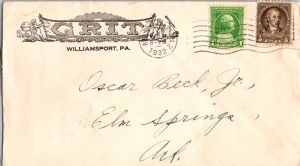 GRIT
WILLIAMSPORT, PA.
1932
Oscar Beck, Jr.,
Elm Springs,
Ark.